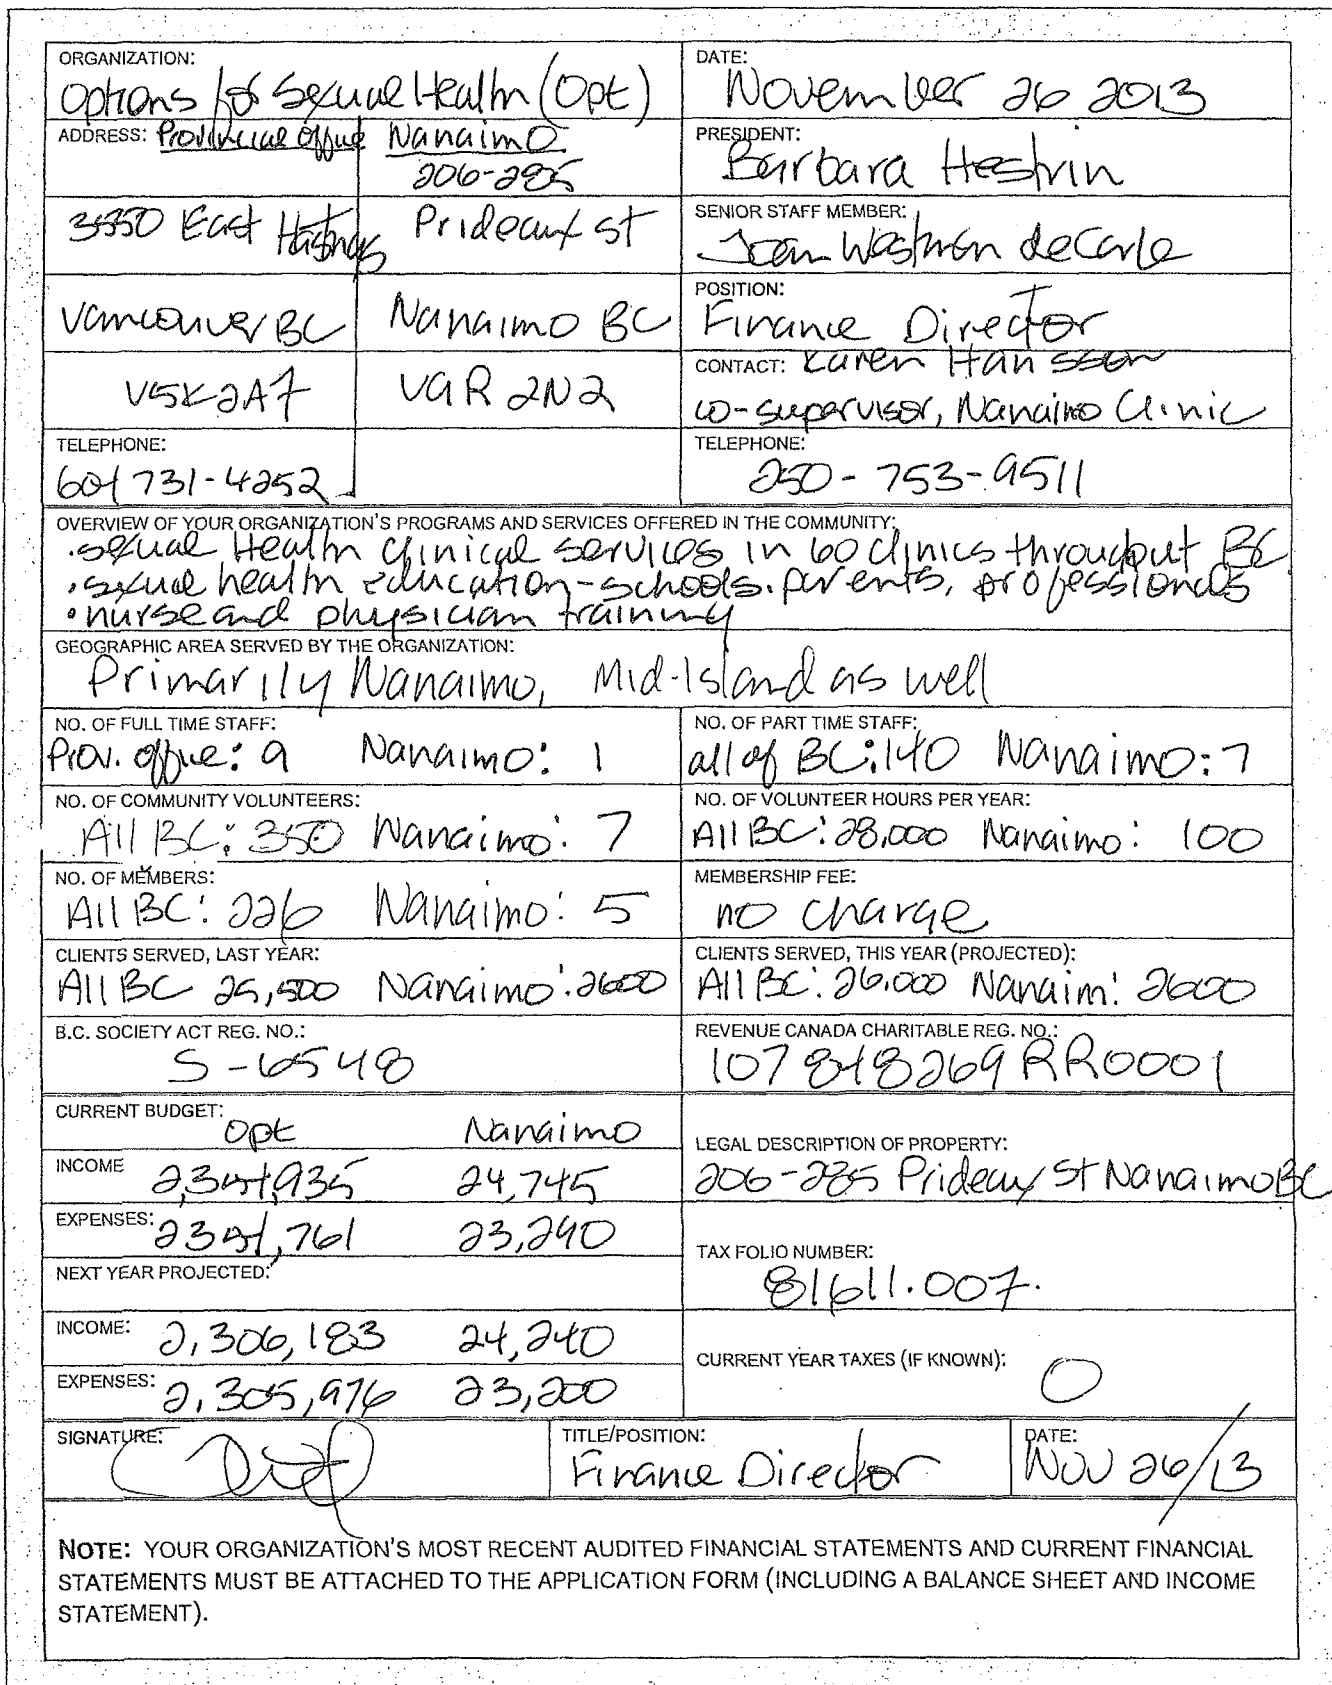 ORGANIZATION:
Options for Sexual Health (Opt)
DATE:
November 26 2013
ADDRESS: Provincial Office Nanaimo
206-285
PRESIDENT:
Barbara Hestrin
3550 East Hastings Prideaux St
SENIOR STAFF MEMBER:
Joan Westman deCarle
Vancouver BC Nanaimo BC
POSITION:
Finance Director
V5K2A7 V9R 2N2
CONTACT: Karen Hansson
co-supervisor, Nanaimo Clinic
TELEPHONE:
604 731-4252
TELEPHONE:
250-753-9511
OVERVIEW OF YOUR ORGANIZATION'S PROGRAMS AND SERVICES OFFERED IN THE COMMUNITY:
• Sexual Health clinical services in 60 clinics throughout BC
• sexual health education - schools, parents, professionals
• nurse and physician training
GEOGRAPHIC AREA SERVED BY THE ORGANIZATION:
Primarily Nanaimo, Mid-Island as well
NO. OF FULL TIME STAFF:
Prov. office: 9 Nanaimo: 1
NO. OF PART TIME STAFF:
all of BC: 140 Nanaimo: 7
NO. OF COMMUNITY VOLUNTEERS:
All BC: 350 Nanaimo: 7
NO. OF VOLUNTEER HOURS PER YEAR:
All BC: 28,000 Nanaimo: 100
NO. OF MEMBERS:
All BC: 226 Nanaimo: 5
MEMBERSHIP FEE:
no charge
CLIENTS SERVED, LAST YEAR:
All BC 25,500 Nanaimo: 2600
CLIENTS SERVED, THIS YEAR (PROJECTED):
All BC: 26,000 Nanaim: 2600
B.C. SOCIETY ACT REG. NO.:
S-6548
REVENUE CANADA CHARITABLE REG. NO.:
107 848269 RR0001
CURRENT BUDGET:
Opt Nanaimo
INCOME 24,745
EXPENSES: 23,290
LEGAL DESCRIPTION OF PROPERTY:
206-285 Prideaux St Nanaimo BC
TAX FOLIO NUMBER:
81611.007.
NEXT YEAR PROJECTED:
INCOME: 2,306,183 24,240
EXPENSES: 2,305,976 23,200
CURRENT YEAR TAXES (IF KNOWN): 0
SIGNATURE:
TITLE/POSITION:
Finance Director
DATE:
Nov 26/13
NOTE: YOUR ORGANIZATION'S MOST RECENT AUDITED FINANCIAL STATEMENTS AND CURRENT FINANCIAL
STATEMENTS MUST BE ATTACHED TO THE APPLICATION FORM (INCLUDING A BALANCE SHEET AND INCOME
STATEMENT).